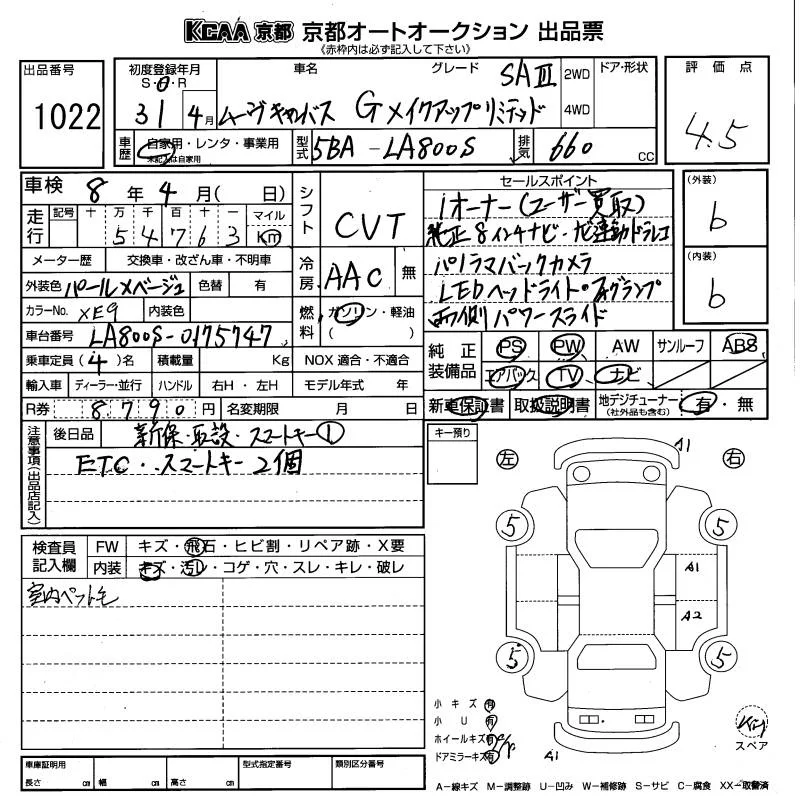 KCAA 京都 京都オートオークション 出品票
《赤枠内は必ず記入して下さい》
出品番号 1022
初度登録年月 S・H・R 31 4月
車名 グレード
ムーヴキャンバス Gメイクアップリミテッド SAⅢ
2WD 4WD
ドア・形状
評価点 4.5
車歴 自家用・レンタ・事業用 未記入は自家用
型式 5BA-LA800S
排気 660 CC
車検 8年 4月( 日)
走行 記号 十 万 千 百 十 一 マイル Km
54763
メーター歴 交換車・改ざん車・不明車
外装色 パールメベージュ 色替 有
カラーNo. XE9 内装色
車台番号 LA800S-0175747
乗車定員(4)名 積載量 Kg
輸入車 ディーラー・並行 ハンドル 右H・左H
R券 8790円 名変期限 月 日
シフト CVT
冷房 AAC 無
燃料 ガソリン・軽油 ( )
NOX適合・不適合
モデル年式 年
セールスポイント
1オーナー(ユーザー買取)
純正8インチナビ・ナビ連動ドラレコ
パノラマバックカメラ
LEDヘッドライト・フォグランプ
両側パワースライド
(外装) b
(内装) b
純正装備品 PS PW AW サンルーフ ABS
エアバック TV ナビ
新車保証書 取扱説明書 地デジチューナー (社外品も含む) 有・無
注意事項(出品店記入)
後日品 新保・取説・スマートキー①
ETC・スマートキー2個
キー預り
検査員記入欄
FW キズ・飛石・ヒビ割・リペア跡・X要
内装 キズ・汚レ・コゲ・穴・スレ・キレ・破レ
室内ペット毛
左 右
A1
5 5
A1
A2
5 5
小キズ 有
小U 有
ホイールキズ 有
ドアミラーキズ 有
A1
スペア
車庫証明用 長さ cm 幅 cm 高さ cm
型式指定番号
類別区分番号
A−線キズ M−調整跡 U−凹み W−補修跡 S−サビ C−腐食 XX−取替済